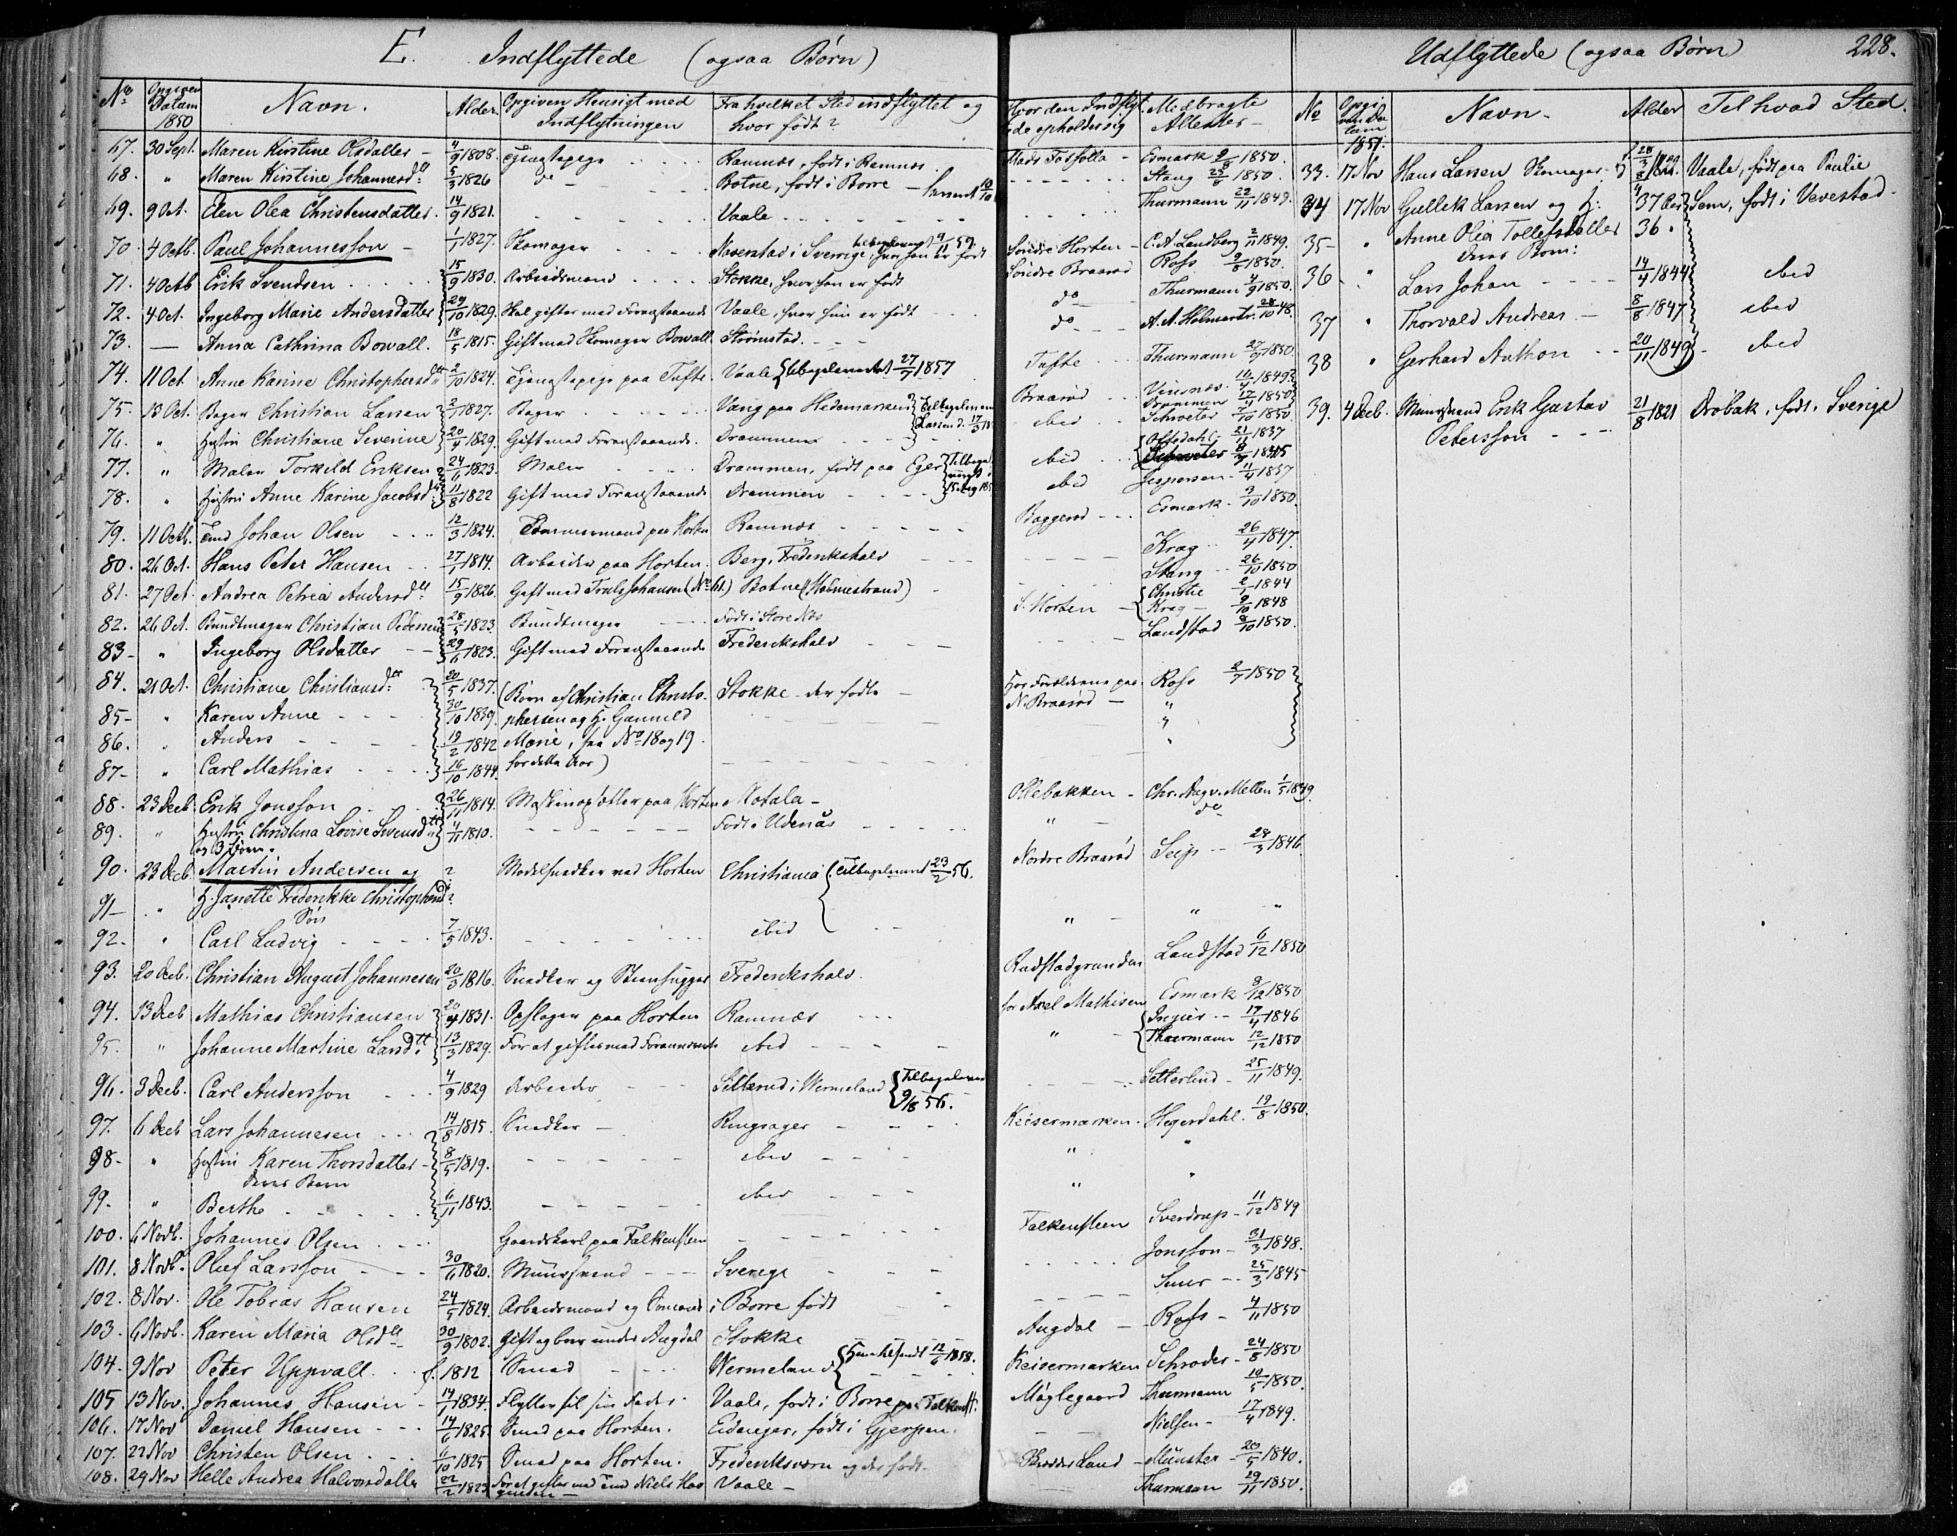 E. Indflyttede (ogsaa Børn)
No Opgiven Datum 1850 Navn. Alder Opgiven Hensigt med Indflytningen Fra hvilket Sted indflyttet og hvor født? Hvor den Indflyttede opholder sig Medbragte Attester
67. 30 Sept. Maren Kirstine Olsdatter 4/9 1808. Tjenestepige Ramnes, født i Ramnes Mads Fosfolla Esmark 9/8 1850.
68. " Maren Kirstine Johannesd. 5/3 1826 do Botne, født i Borre Stang 1850.
69. 9 Oct. Elen Olea Christensdatter 14/9 1821. Vaale Thurmann 22/11 1849.
70. 4 Octb. Paul Johannesson 1/1 1827. Skomager i Sverige, hvor han er født Søndre Horten C. A. Landberg 2/11 1849.
71. 4 Octb Erik Svendsen 15/9 1830. Arbeidsmand Stokke, hvor han er født Søndre Braarød Ross 9/8 1850.
72. 4 Oct. Ingeborg Marie Andersdatter 29/10 1829. Skal giftes med Foranstaaende Vaale, hvor hun er født do Thurmann 4/9 1850.
73. — Anna Cathrina Bowall. 18/5 1815. Gift med Skomager Bowall Strømstad. do A. A. Holmertz 28/10 48.
74. 11 Oct. Anne Karine Christophersd. 2/10 1824. Tjenestepige paa Tufte. Vaale {tilbagelevert 27/7 1857 Tufte Thurmann 27/9 1850.
75. 13 Oct. Bager Christian Larsen 2/1 1827. Bager Vang paa Hedemarken Braarød
76. " Hustru Christiane Severine 20/9 1829. Gift med Foranstaaende. Drammen ibid
77. " Maler Torkild Eriksen 24/6 1823. Maler Drammen, født paa Eger ibid
78. " Hustru Anne Karine Jacobsd. 11/8 1822 Gift med Foranstaaende Drammen ibid Jespersen 11/4 1837
79. 11 Octb. Johan Olsen 12/3 1824. Tømmermand paa Horten Ramnes Baggerød Esmark 3/10 1850.
80. 26 Oct. Hans Peter Hansen 27/1 1814. Arbeider paa Horten. Berg, Frederikshald Krag 26/4 1847.
81. 27 Oct. Andrea Petrea Andersd. 15/9 1826. Gift med Truls Johansen (No 61.) Botne (Holmestrand) Stang 26/10 1850
82. 26 Oct. Bundtmager Christian Pedersen 28/5 1823. Bundtmager S. Horten {Christie 2/1 1844 Krag 9/10 1848
83 " Ingeborg Olsdatter 29/6 1823. Gift med Foranstaaende Frederikshald Landstad 8/10 1850.
84. 21 Oct. Christiane Christiansd. 20/5 1837. (Børn af Christian Christo- Stokke der fødte Hos Forældrene paa N. Braarød Ross 2/7 1850
85 " Karen Anne 30/10 1839. phersen og H. Gunnild "
86. " Anders 19/2 1842 Marie, see No 18 og 19. "
87 " Carl Mathias 16/10 1844. for dette Aar) "
88. 23 Decb. Erik Jonsson 26/11 1814. Maskinopsætter paa Horten Motala Ollebakken Chr. Aug. v. Mellen 1/5 1849.
89. " Hustru Christina Lovise Svensd. 4/11 1810. Født i Udenäs " do
og 3 Børn.
90. 23 Decb. Martin Andersen og ? Modelsnedker ved Horten Christiania (tilbagelevert 23/2 56. Nordre Braarød Seip 28/3 1846.
91 " H. Janette Frederikke Christophersd. ?
Søn
92. " Carl Ludvig 7/5 1843. ibid " " "
93. 20 Decb. Christian August Johannesen 20/3 1816. Snedker og Steenhugger Frederikshald. Rødstadgrunden Landstad 6/12 1850
94. 13 Decb Mathias Christiansen 20/4 1831. Opslager paa Horten Ramnes hos Axel Mathisen Esmark 8/12 1850
95. " Johanne Martine Larsd. 13/3 1829. For at giftes med Forannævnte ibid " {17/4 1846 Thurmann 12/12 1850
96. 3 Decb. Carl Andersson 4/9 1829 Arbeider Silbrud i Wermeland {tilbagelevert 9/8 56. Setterlind 25/11 1849.
97. 6 Decb Lars Johannesen 14/8 1815. Snedker Ringsager Keisermarken Hegerdahl. 19/8 1850.
98 " Hustru Karen Thorsdatter 8/5 1819. ibid " "
deres Barn
99. " Berthe 6/11 1843. ibid " "
100. 6 Novb. Johannes Olsen Gaardskarl paa Falkensteen Falkensteen Sverdrup 11/12 1849
101. 8 Novb. Oluf Larsson 30/6 1820. Muursvend Sverige Jonsson 31/3 1848.
102. 8 Nov. Ole Tobias Hansen 24/5 1824. Arbeidsmand og Sømand i Borre født 25/3 1845
103. 6 Novb. Karen Maria Olsd. 30/9 1802. Gift og boer under Augdal Stokke Augdal Ross 4/11 1850
104. 9 Nov Peter Uppvall f. 1812 Smed Wermeland {Hjemsendt 12/6 1858. Keisermarken Schrøder 24/8 1850
105 13 Nov. Johannes Hansen 14/1 1834. Flytter til sin Fader Vaale, født i Borre paa Falkenst. Møglegaard Thurmann 10/5 1850.
106. 17 Nov Daniel Hansen 14/6 1825 Smed paa Horten. Eidanger, født i Gjerpen. Nielsen 17/4 1849.
107. 22 Nov Christen Olsen 6/10 1825 Smed paa Horten. Frederiksværn og der født. Münster 20/5 1840.
108. 29 Nov Helle Andrea Halvorsdatter 22/2 1823 For at giftes med Niels Vaale Thurmann 29/11 1850.
Udflyttede (ogsaa Børn) 228.
No Opgiven Datum 1851. Navn. Alder Til hvad Sted.
33. 17 Nov Hans Larsen Skomager Vaale, født paa Paulie
34 17 Nov Gullik Larsen og H: 37 Aar Sem, født i Vevestad
35 " Anne Olia Tollefsdatter 36 "
deres Børn:
36 " Lars Johan 14/4 1844 ibid
37 " Thorvald Andreas 8/8 1847 ibid
38 " Gerhard Anthon 20/11 1849 ibid
39. 4 Decb. Muursvend Erik Gustav 21/8 1821 Drøbak, født i Sverige
Petersson